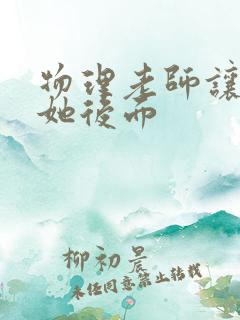 物理老師讓
她後而
柳初晨
未任同意禁止转载